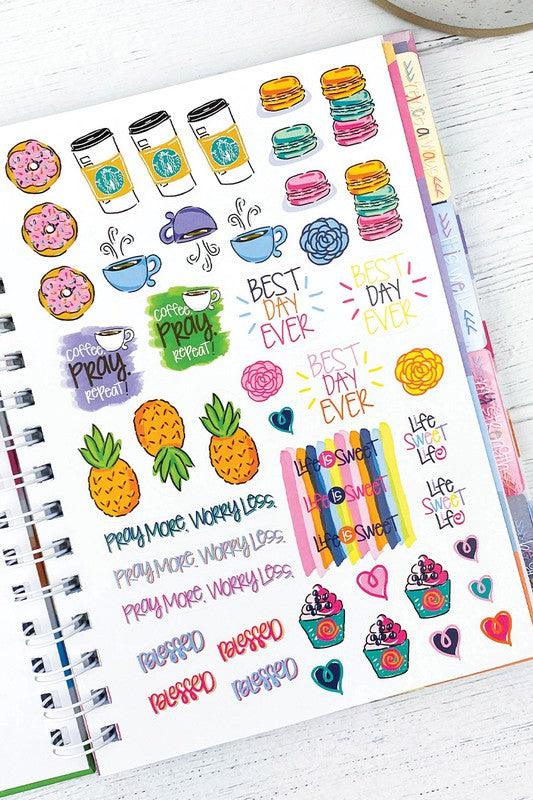 BEST
DAY
EVER
BEST
DAY
EVER
coffee.
PRAY.
REPEAT!
coffee.
PRAY.
REPEAT!
BEST
DAY
EVER
Life
SWEET
Life
Life is SWEET
Life is SWEET
Life is SWEET
Life
SWEET
Life
PRAY MORE. WORRY LESS.
PRAY MORE. WORRY LESS.
PRAY MORE. WORRY LESS.
BLESSED
BLESSED
BLESSED
BLESSED